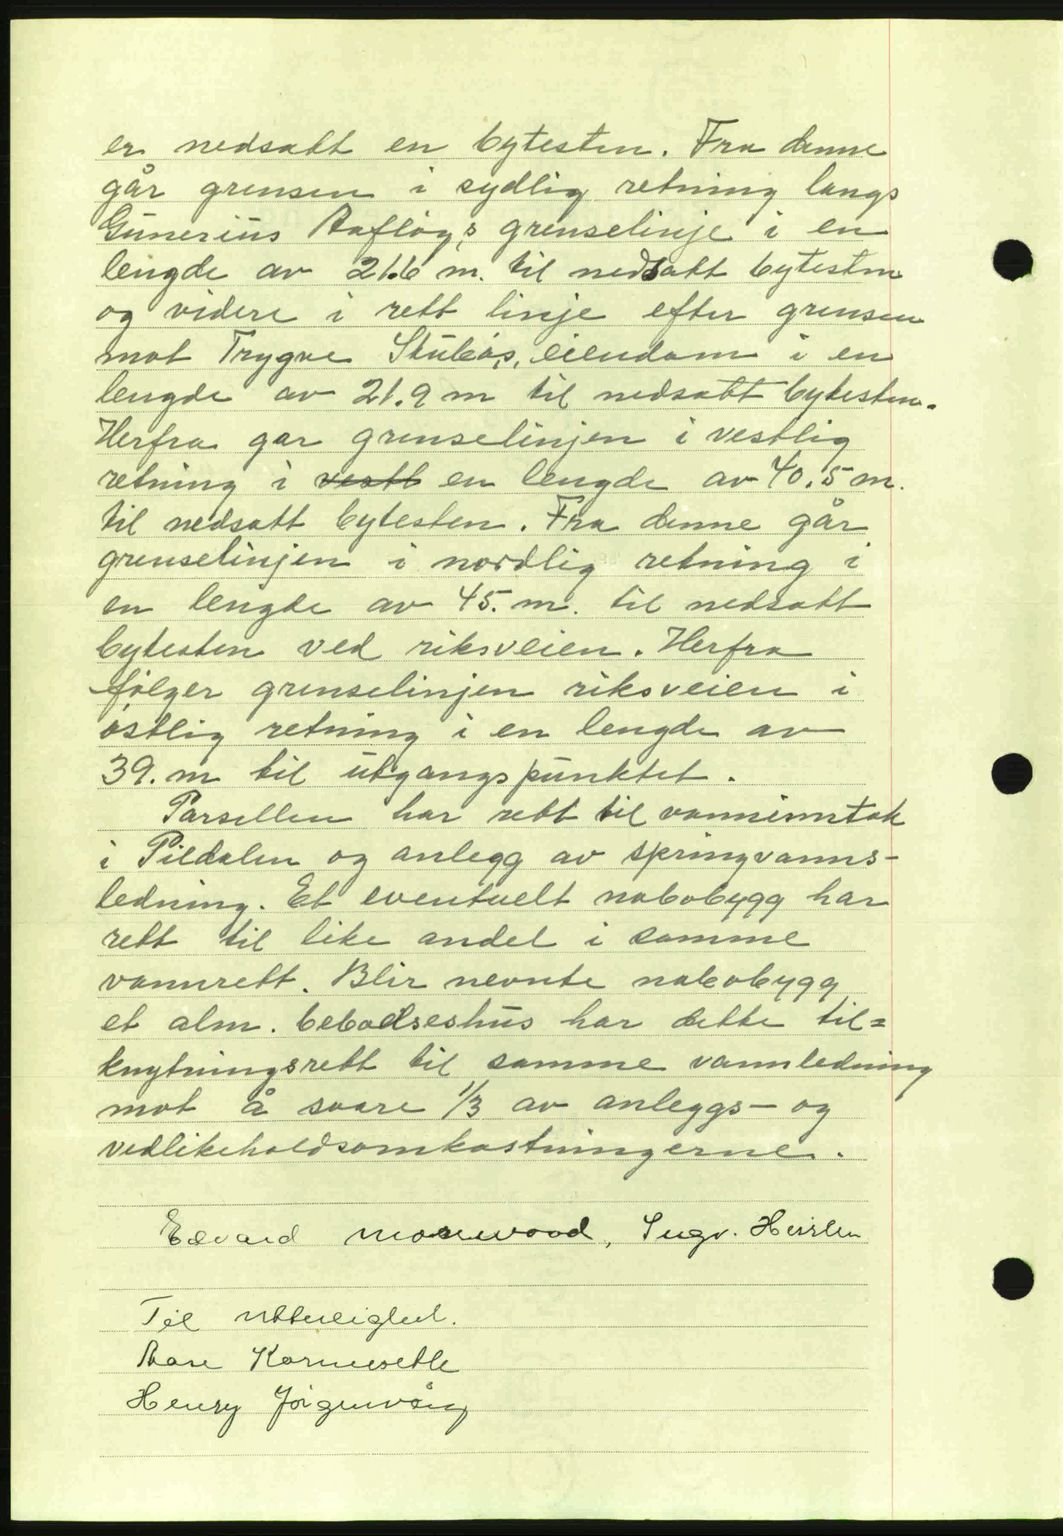 er nedsatt en bytesten. Fra denne
går grensen i sydlig retning langs
Gunerius Aafløys grenselinje i en
lengde av 21.6 m. til nedsatt bytesten
og videre i rett linje efter grensen
mot Trygve eiendom i en
lengde av 21.9 m til nedsatt bytesten.
Herfra gar grenselinjen i vestlig
retning i vestl en lengde av 40.5 m.
til nedsatt bytesten. Fra denne går
grenselinjen i nordlig retning i
en lengde av 45. m. til nedsatt
bytesten ved riksveien. Herfra
følger grenselinjen riksveien i
østlig retning i en lengde av
39. m til utgangspunktet.
Parsellen har rett til vanninntak
i Pildalen og anlegg av springvanns-
ledning. Et eventuelt nabobygg har
rett til like andel i samme
vannrett. Blir nevnte nabobygg
et alm. beboelseshus har dette til=
knytningsrett til samme vannledning
mot å svare 1/3 av anleggs- og
vedlikeholdsomkostningerne.
Edvard Morewood, Ingv.
Til vitterlighet.
Henry